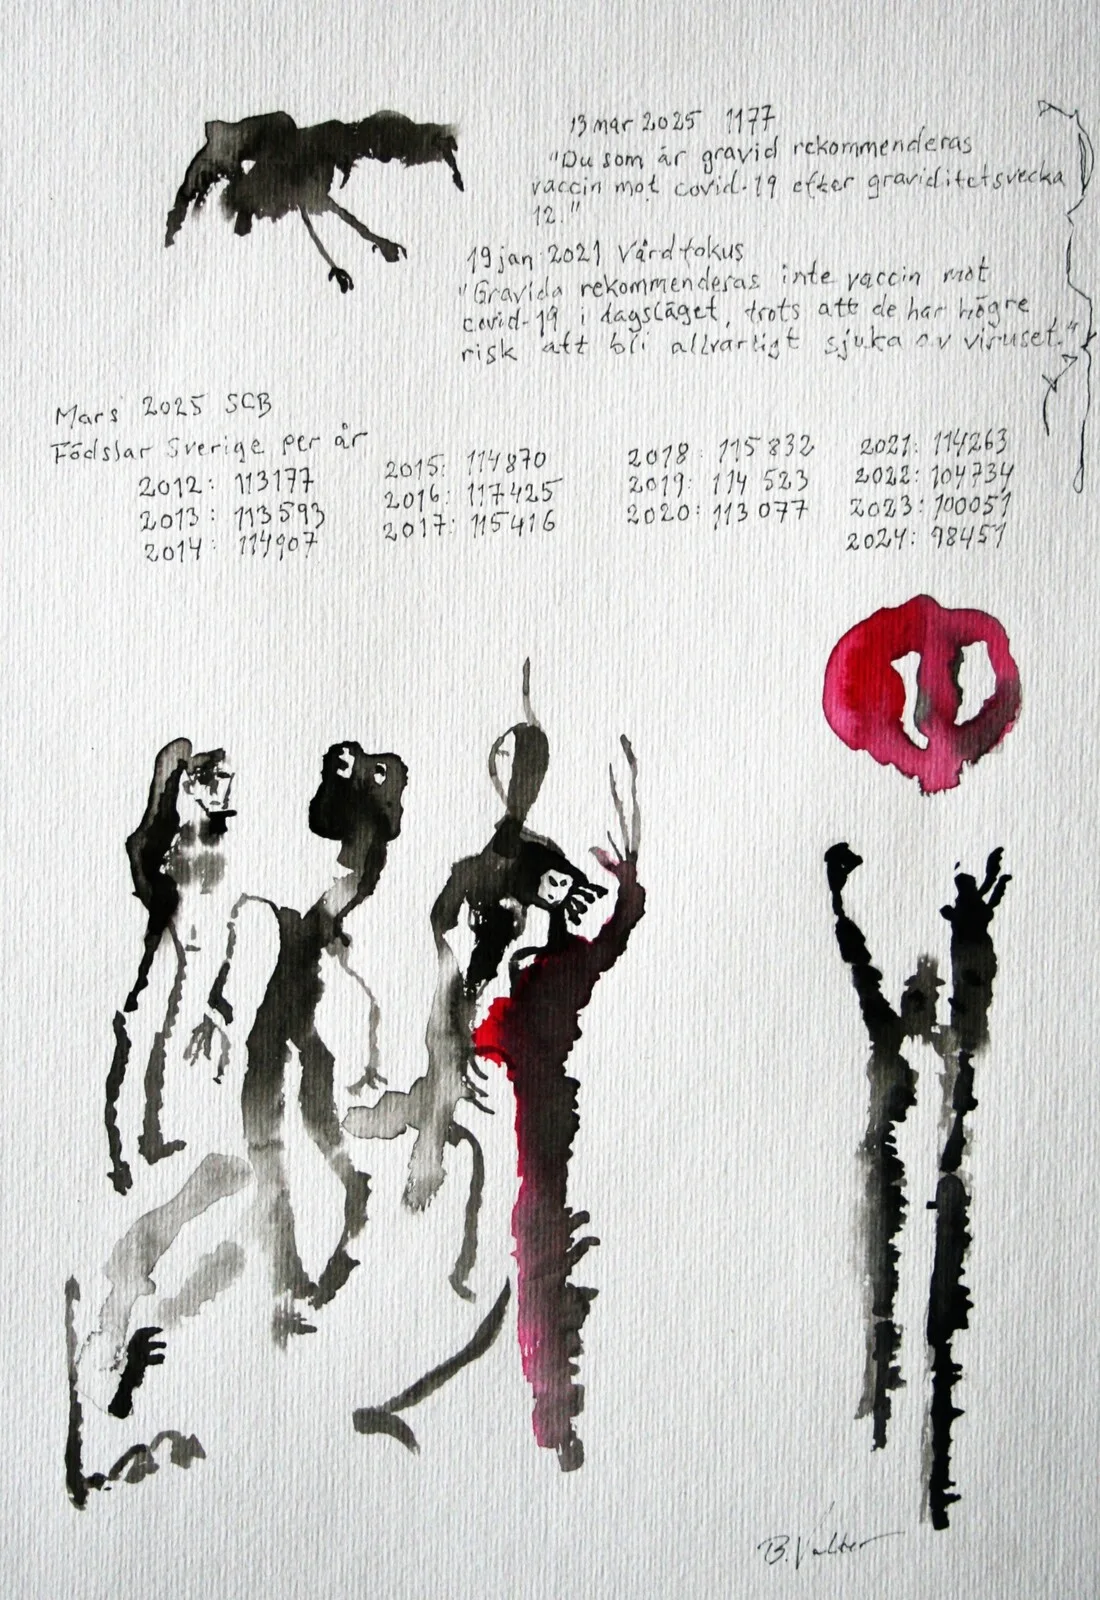 13 mar 2025 1177
"Du som är gravid rekommenderas
vaccin mot covid-19 efter graviditetsvecka
12."
19 jan 2021 Vårdfokus
"Gravida rekommenderas inte vaccin mot
covid-19 i dagsläget, trots att de har högre
risk att bli allvarligt sjuka av viruset."
Mars 2025 SCB
Födslar Sverige per år
2012: 113177
2013: 113593
2014: 114907
2015: 114870
2016: 117425
2017: 115416
2018: 115 832
2019: 114 523
2020: 113 077
2021: 114263
2022: 104734
2023: 100051
2024: 98451
B. Valter